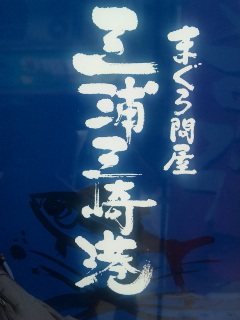 まぐろ問屋
三浦三崎港